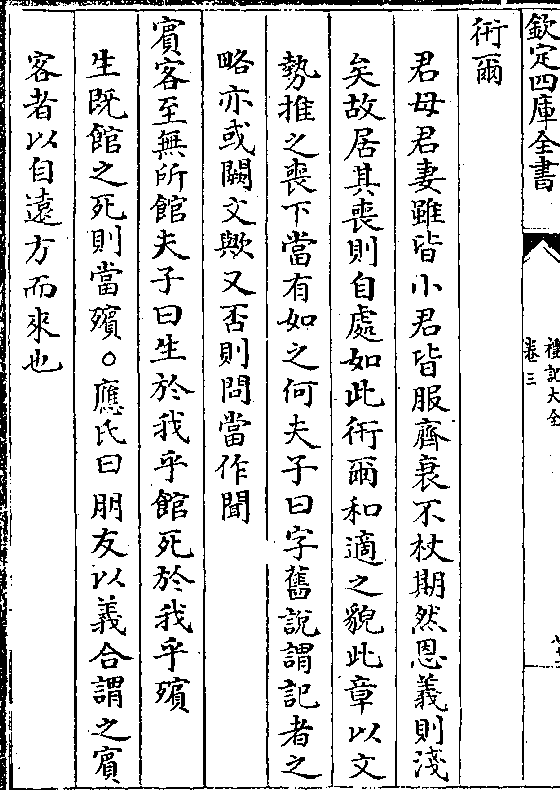 欽定四庫全書
禮記大全
卷三
衎爾
君母君妻雖皆小君皆服齊衰不杖期然恩義則淺
矣故居其喪則自處如此衎爾和適之貌此章以文
勢推之喪下當有如之何夫子曰字舊說謂記者之
略亦或闕文歟又否則問當作聞
賓客至無所館夫子曰生於我乎館死於我乎殯
生既館之死則當殯○應氏曰朋友以義合謂之賓
客者以自遠方而來也